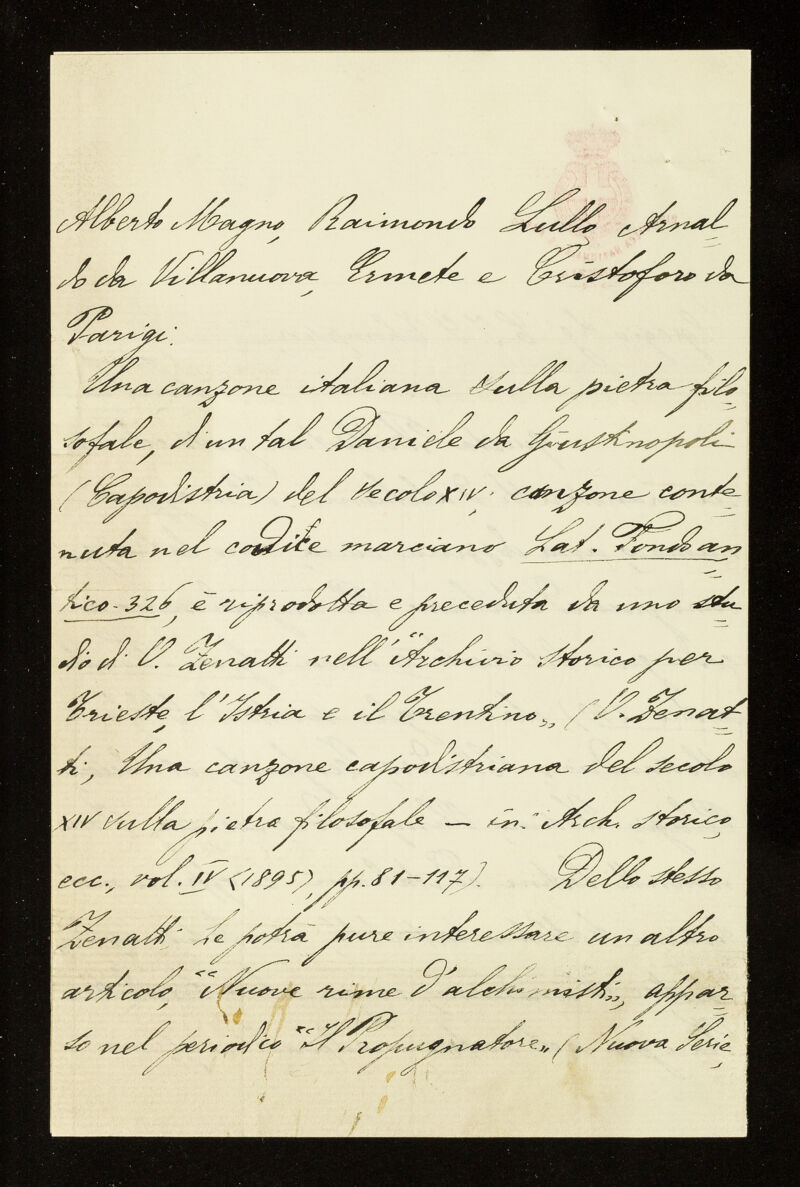 Alberto Magno, Raimondo Lullo Arnal=
do da Villanuova, Ermete e Cristoforo da
Parigi.
Una canzone italiana sulla pietra filo=
sofale, d'un tal Daniele da Giustinopoli
(Capodistria) del secolo XIV, canzone conte=
nuta nel codice marciano Lat. Fondo an=
tico-326, è riprodotta e preceduta da uno stu=
dio di V. Zenatti nell'"Archivio storico per
Trieste, l'Istria e il Trentino„ (V. Zenat=
ti, Una canzone capodistriana del secolo
XIV sulla pietra filosofale — in: Arch. storico,
ecc., vol. IV (1895), pp. 81-117). Dello stesso
Zenatti Le potrà pure interessare un altro
articolo, "Nuove rime d'alchimisti„, appar=
so nel periodico "Il Propugnatore„ (Nuova Serie,